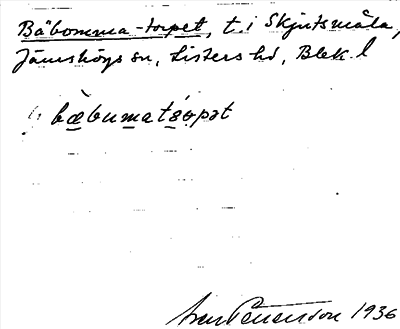 Bäbomma-torpet, t. i Skjutsmåla,
Jämshögs sn, Listers hd, Blek. l
bæbumatɔrpət
Pettersson 1936